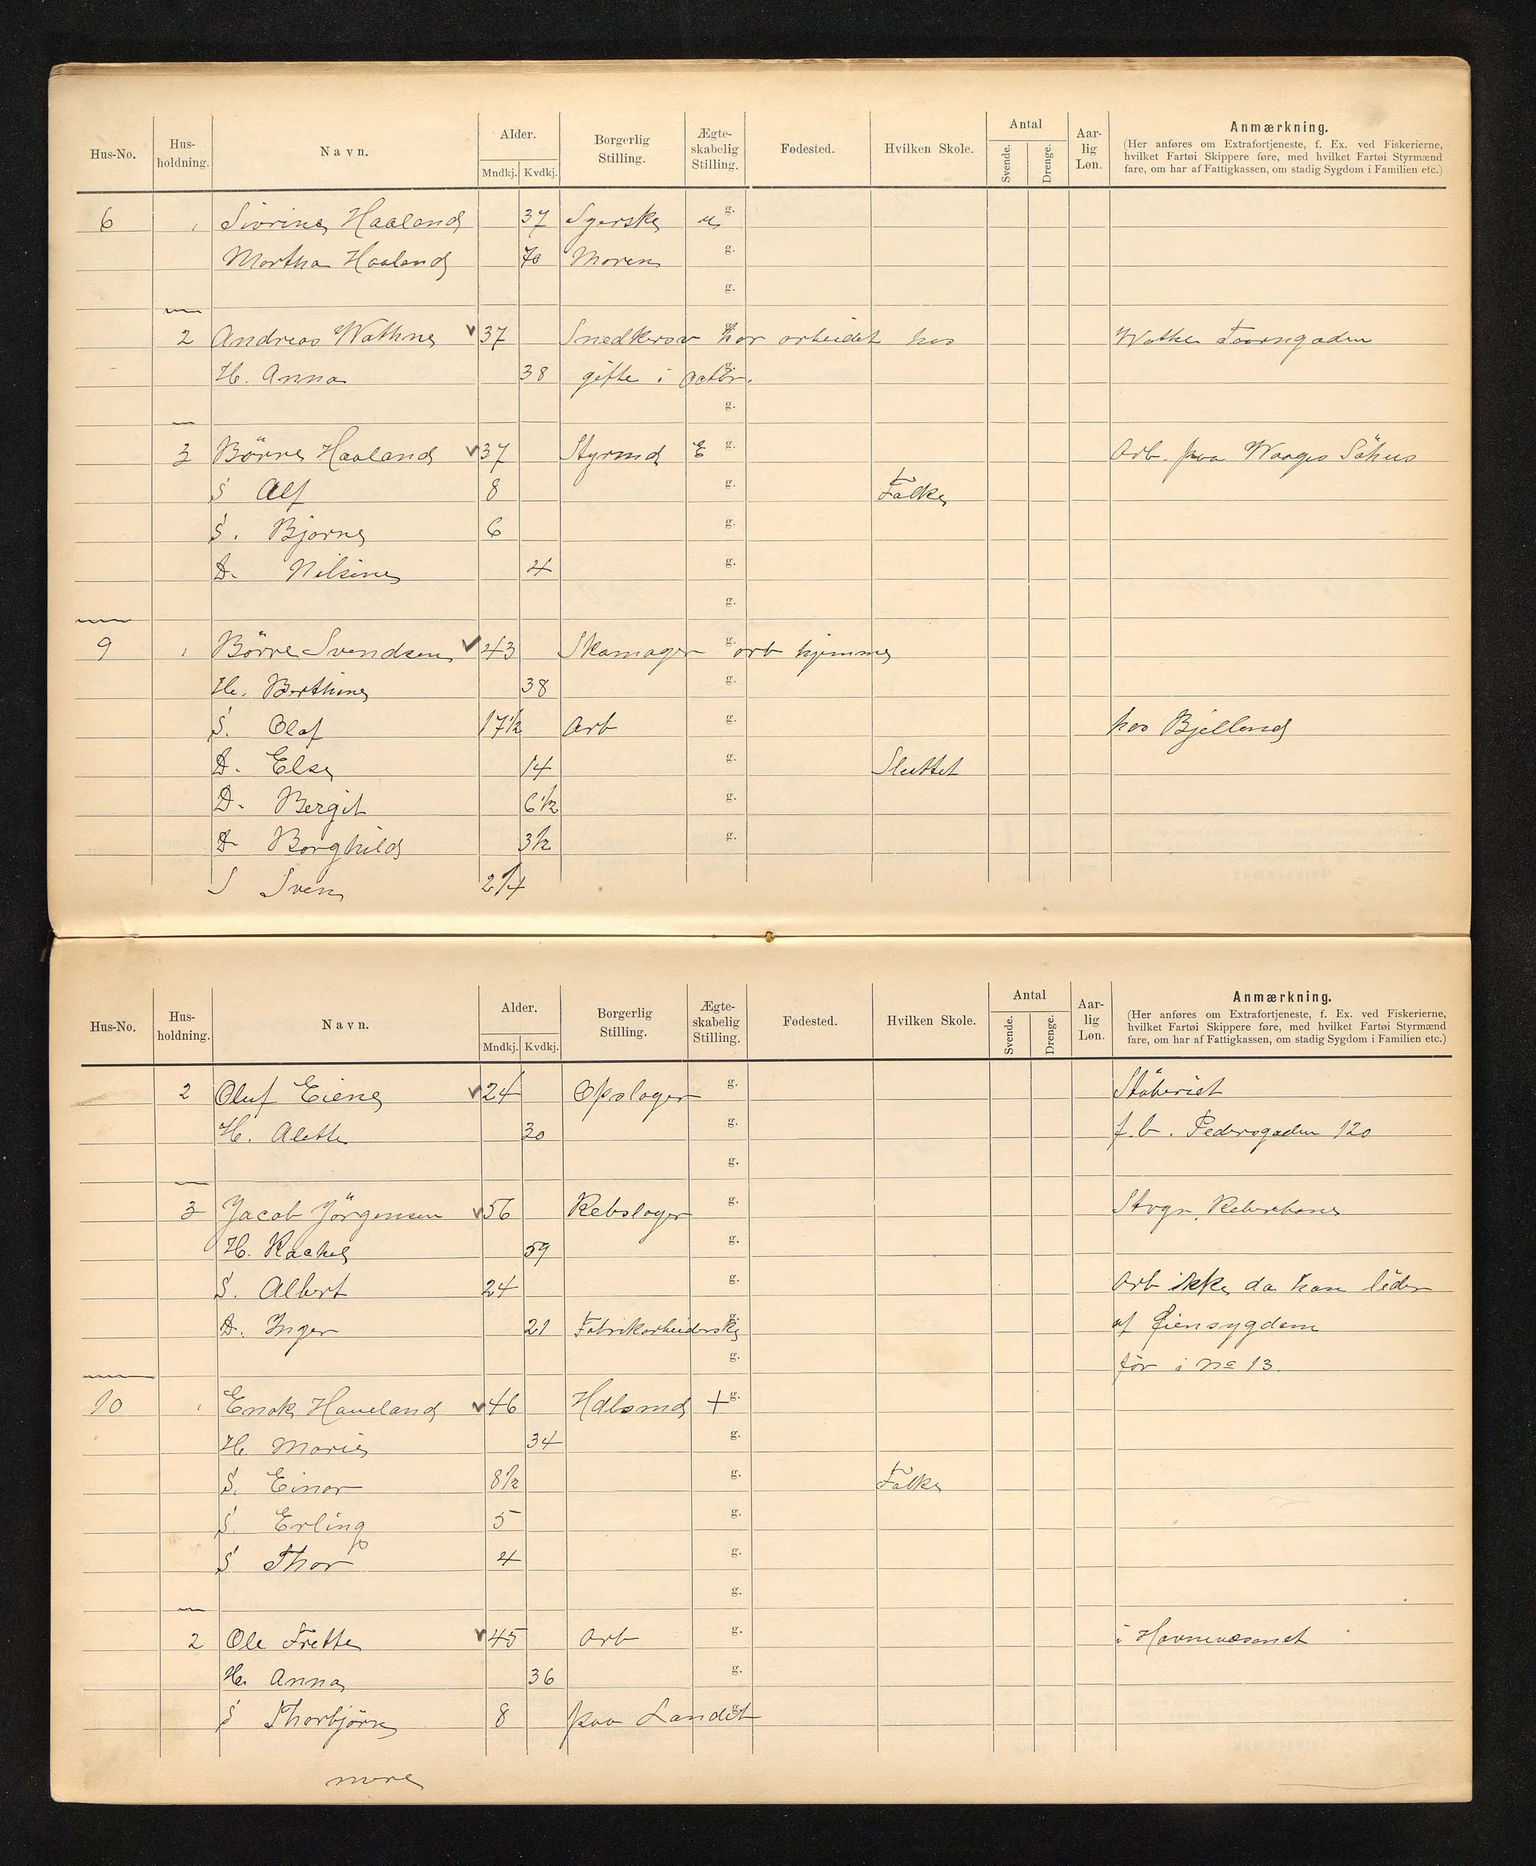 Hus-No. Hus-holdning. Navn. Alder. Mndkj. Kvdkj. Borgerlig Stilling. Ægte-skabelig Stilling. Fødested. Hvilken Skole. Antal Svende. Drenge. Aar-lig Løn. Anmærkning.
(Her anføres om Extrafortjeneste, f. Ex. ved Fiskerierne,
hvilket Fartøi Skippere føre, med hvilket Fartøi Styrmænd
fare, om har af Fattigkassen, om stadig Sygdom i Familien etc.)
6 1 Sivrine Haaland 37 Syerske u g.
Martha Haaland 70 Moren g.
g.
2 Andreas Wathne 37 Snedkersv har arbeidet hos Wathne
H. Anna 38 gifte i g.
g.
3 Börre Haaland 37 Styrmd E g. Arb. paa Waages Söhus
S Alf 8 g. Falke
S. Bjarne 6 g.
D. Nilsine 4 g.
g.
9 1 Börre Svendsen 43 Skomager g. arb hjemme
H. Berthine 38 g.
S. Olaf 17½ Arb g. hos Bjelland
D. Else 14 g. Sluttet
D. Bergit 6½ g.
D Borghild 3½ g.
S Sven 2/4
Hus-No. Hus-holdning. Navn. Alder. Mndkj. Kvdkj. Borgerlig Stilling. Ægte-skabelig Stilling. Fødested. Hvilken Skole. Antal Svende. Drenge. Aar-lig Løn. Anmærkning.
(Her anføres om Extrafortjeneste, f. Ex. ved Fiskerierne,
hvilket Fartøi Skippere føre, med hvilket Fartøi Styrmænd
fare, om har af Fattigkassen, om stadig Sygdom i Familien etc.)
2 Oluf Eiene 24 Opslager g. Stöberiet
H. Alette 30 g. f.b. Pedersgaden 120
g.
3 Jacob Jörgensen 56 Rebslager g. Stvgr. Reberbane
H. Rachel 59 g.
S. Albert 24 g. Arb ikke da han lider
D. Inger 21 Fabrikarbeiderske g. af Øiensygdom
g. för i No 13.
10 1 Enok Haueland 46 Hdlsmd + g.
H. Marie 34 g.
S. Einar 8½ g. Falke
S Erling 5 g.
S Thor 4 g.
g.
2 Ole Frette 45 Arb g. i Havnevæsenet
H. Anna 36 g.
S Thorbjörn 8 paa Landet g.
mere